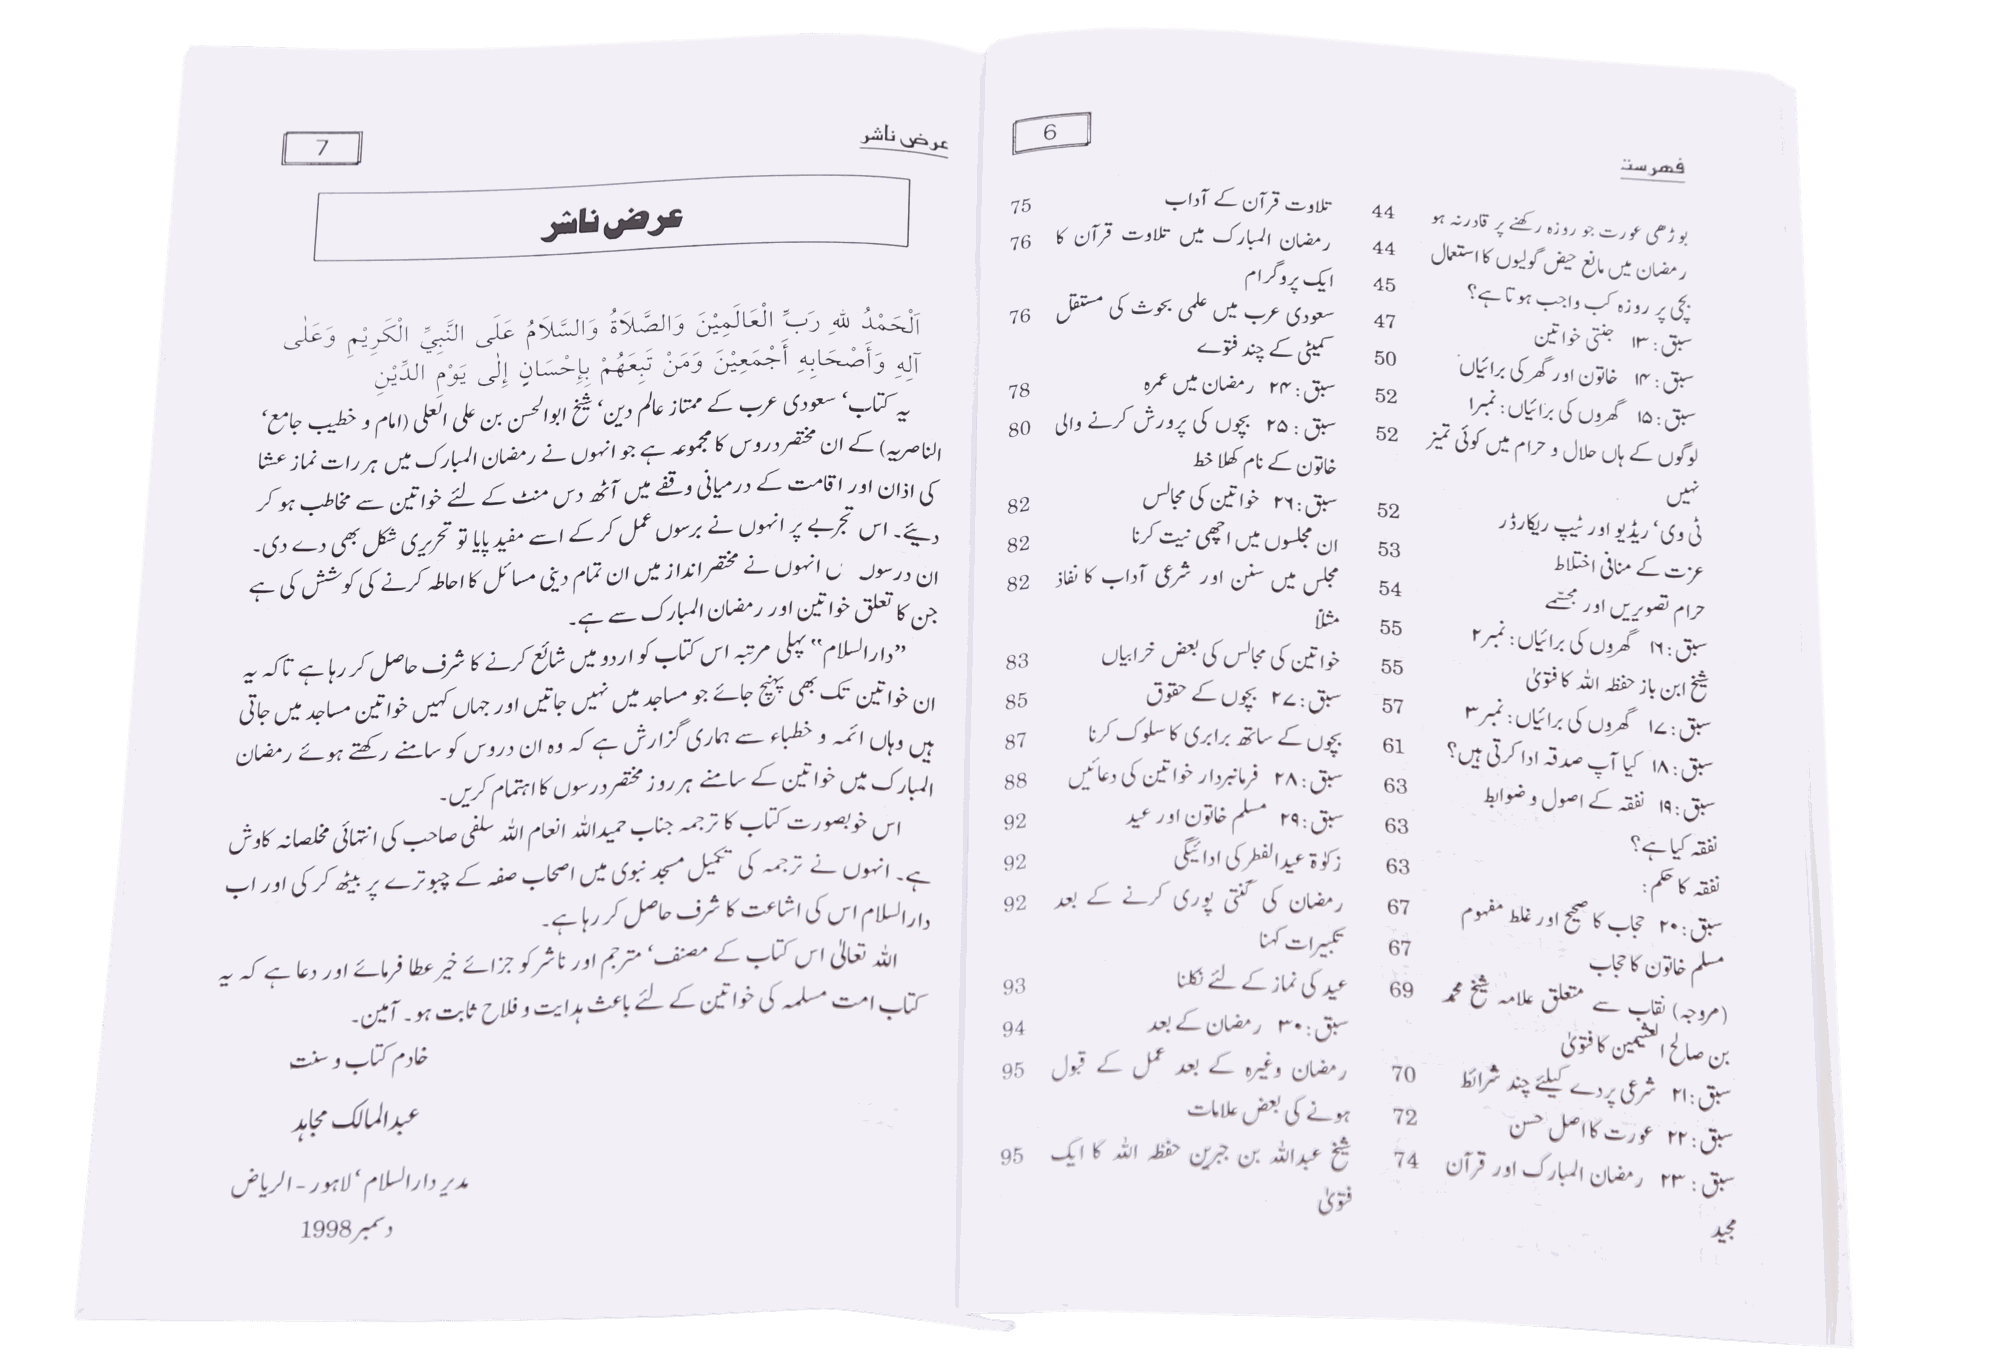 فہرست
6
بوڑھی عورت جو روزہ رکھنے پر قادر نہ ہو 44
رمضان میں مانع حیض گولیوں کا استعمال 44
بچی پر روزہ کب واجب ہوتا ہے؟ 45
سبق: ۱۳ جنتی خواتین 47
سبق: ۱۴ خاتون اور گھر کی برائیاں 50
سبق: ۱۵ گھروں کی برائیاں: نمبر۱ 52
لوگوں کے ہاں حلال و حرام میں کوئی تمیز 52
نہیں
ٹی وی‘ ریڈیو اور ٹیپ ریکارڈر 52
عزت کے منافی اختلاط 53
حرام تصویریں اور مجسّمے 54
سبق: ۱۶ گھروں کی برائیاں: نمبر۲ 55
شیخ ابن باز حفظہ اللہ کا فتویٰ 55
سبق: ۱۷ گھروں کی برائیاں: نمبر۳ 57
سبق: ۱۸ کیا آپ صدقہ ادا کرتی ہیں؟ 61
سبق: ۱۹ نفقہ کے اصول و ضوابط 63
نفقہ کیا ہے؟ 63
نفقہ کا حکم: 63
سبق: ۲۰ حجاب کا صحیح اور غلط مفہوم 67
مسلم خاتون کا حجاب 67
(مروجہ) نقاب سے متعلق علامہ شیخ محمد 69
بن صالح العثیمین کا فتویٰ
سبق: ۲۱ شرعی پردے کیلئے چند شرائط 70
سبق: ۲۲ عورت کا اصل حسن 72
سبق: ۲۳ رمضان المبارک اور قرآن 74
مجید
تلاوت قرآن کے آداب 75
رمضان المبارک میں تلاوت قرآن کا 76
ایک پروگرام
سعودی عرب میں علمی بحوث کی مستقل 76
کمیٹی کے چند فتوے
سبق: ۲۴ رمضان میں عمرہ 78
سبق: ۲۵ بچوں کی پرورش کرنے والی 80
خاتون کے نام کھلا خط
سبق: ۲۶ خواتین کی مجالس 82
ان مجلسوں میں اچھی نیت کرنا 82
مجلس میں سنن اور شرعی آداب کا نفاذ 82
مثلاً
خواتین کی مجالس کی بعض خرابیاں 83
سبق: ۲۷ بچوں کے حقوق 85
بچوں کے ساتھ برابری کا سلوک کرنا 87
سبق: ۲۸ فرمانبردار خواتین کی دعائیں 88
سبق: ۲۹ مسلم خاتون اور عید 92
زکوٰۃ عیدالفطر کی ادائیگی 92
رمضان کی گنتی پوری کرنے کے بعد 92
تکبیرات کہنا
عید کی نماز کے لئے نکلنا 93
سبق: ۳۰ رمضان کے بعد 94
رمضان وغیرہ کے بعد عمل کے قبول 95
ہونے کی بعض علامات
شیخ عبداللہ بن جبرین حفظہ اللہ کا ایک 95
فتویٰ
عرض ناشر
7
عرض ناشر
اَلْحَمْدُ للهِ رَبِّ الْعَالَمِيْنَ وَالصَّلَاةُ وَالسَّلَامُ عَلَى النَّبِيِّ الْكَرِيْمِ وَعَلٰى
آلِهِ وَأَصْحَابِهِ أَجْمَعِيْنَ وَمَنْ تَبِعَهُمْ بِإِحْسَانٍ إِلٰى يَوْمِ الدِّيْنِ
یہ کتاب‘ سعودی عرب کے ممتاز عالم دین‘ شیخ ابوالحسن بن علی العلی (امام و خطیب جامع‘
الناصریہ) کے ان مختصر دروس کا مجموعہ ہے جو انہوں نے رمضان المبارک میں ہر رات نماز عشا
کی اذان اور اقامت کے درمیانی وقفے میں آٹھ دس منٹ کے لئے خواتین سے مخاطب ہو کر
دیئے۔ اس تجربے پر انہوں نے برسوں عمل کر کے اسے مفید پایا تو تحریری شکل بھی دے دی۔
ان درسوں انہوں نے مختصر انداز میں ان تمام دینی مسائل کا احاطہ کرنے کی کوشش کی ہے
جن کا تعلق خواتین اور رمضان المبارک سے ہے۔
”دارالسلام“ پہلی مرتبہ اس کتاب کو اردو میں شائع کرنے کا شرف حاصل کر رہا ہے تاکہ یہ
ان خواتین تک بھی پہنچ جائے جو مساجد میں نہیں جاتیں اور جہاں کہیں خواتین مساجد میں جاتی
ہیں وہاں ائمہ و خطباء سے ہماری گزارش ہے کہ وہ ان دروس کو سامنے رکھتے ہوئے رمضان
المبارک میں خواتین کے سامنے ہر روز مختصر درسوں کا اہتمام کریں۔
اس خوبصورت کتاب کا ترجمہ جناب حمیداللہ انعام اللہ سلفی صاحب کی انتہائی مخلصانہ کاوش
ہے۔ انہوں نے ترجمہ کی تکمیل مسجد نبوی میں اصحاب صفہ کے چبوترے پر بیٹھ کر کی اور اب
دارالسلام اس کی اشاعت کا شرف حاصل کر رہا ہے۔
اللہ تعالیٰ اس کتاب کے مصنف‘ مترجم اور ناشر کو جزائے خیر عطا فرمائے اور دعا ہے کہ یہ
کتاب امت مسلمہ کی خواتین کے لئے باعث ہدایت و فلاح ثابت ہو۔ آمین۔
خادم کتاب و سنت
عبدالمالک مجاہد
مدیر دارالسلام‘ لاہور - الریاض
دسمبر 1998